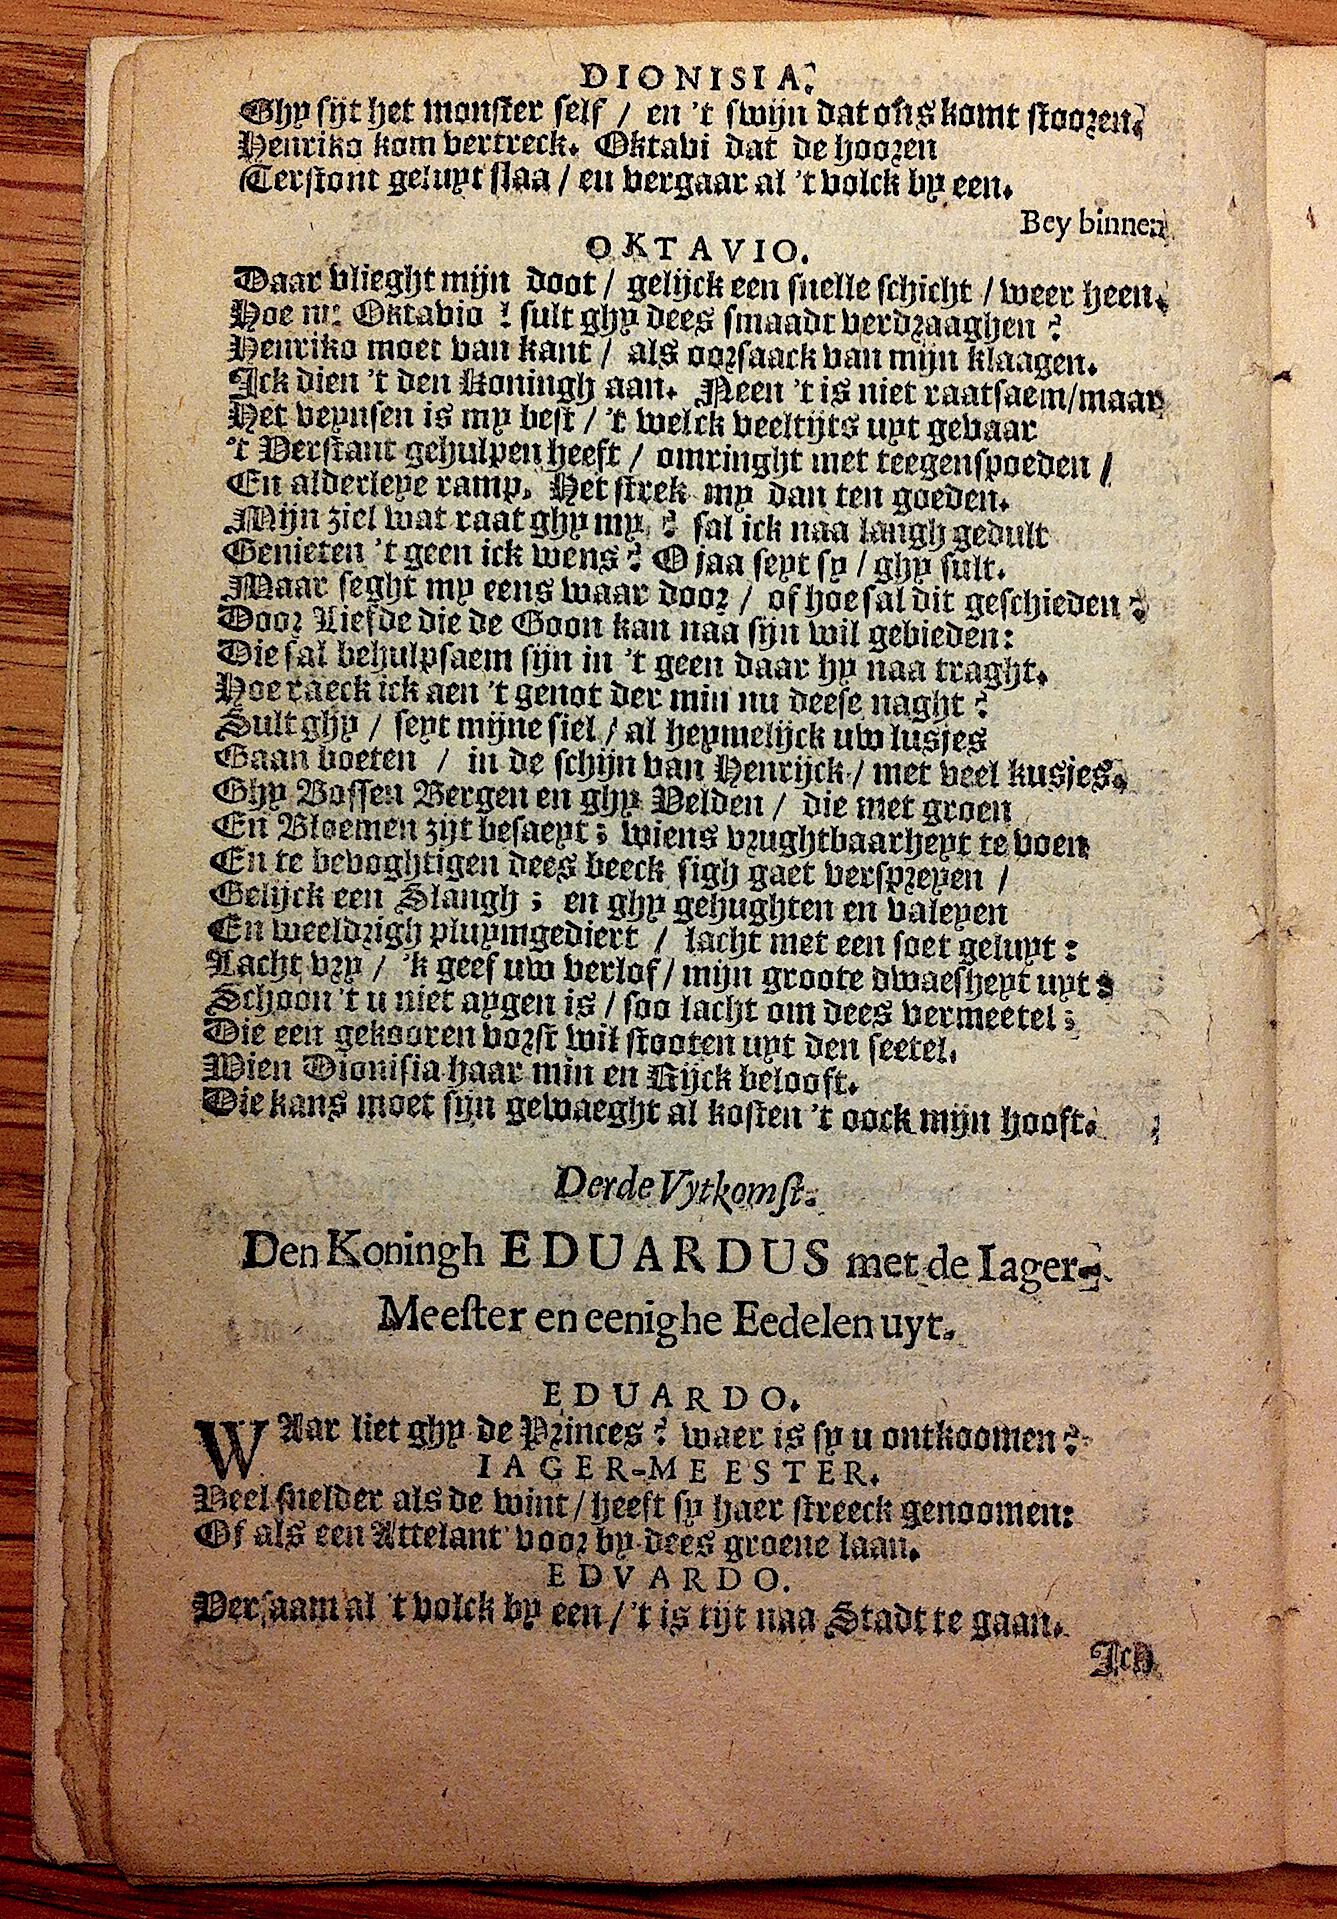 DIONISIA.
Ghy sijt het monster self / en 't swijn dat ons komt stooren.
Henriko kom vertreck. Oktavi dat de hooren
Terstont geluyt slaa / en vergaar al 't volck by een.
Bey binnen
OKTAVIO.
Daar vlieght mijn doot / gelijck een snelle schicht / weer heen.
Hoe nu Oktavio ! sult ghy dees smaadt verdraaghen ?
Henriko moet van kant / als oorsaack van mijn klaagen.
Ick dien 't den Koningh aan. Neen 't is niet raatsaem / maar
Het veynsen is my best / 't welck veeltijts uyt gevaar
't Verstant gehulpen heeft / omringht met teegenspoeden /
En alderleye ramp. Het strek my dan ten goeden.
Mijn ziel wat raat ghy my ? sal ick naa langh gedult
Genieten 't geen ick wens ? O jaa seyt sy / ghy sult.
Maar seght my eens waar door / of hoe sal dit geschieden ?
Door Liefde die de Goon kan naa sijn wil gebieden:
Die sal behulpsaem sijn in 't geen daar hy naa traght.
Hoe raeck ick aen 't genot der min nu deese naght ?
Sult ghy / seyt mijne siel / al heymelijck uw lusjes
Gaan boeten / in de schijn van Henrijck / met veel kusjes.
Ghy Bossen Bergen en ghy Velden / die met groen
En Bloemen zijt besaeyt ; wiens vrughtbaarheyt te voen
En te bevoghtigen dees beeck sigh gaet verspreyen /
Gelijck een Slangh ; en ghy gehughten en valeyen
En weeldrigh pluymgediert / lacht met een soet geluyt :
Lacht vry / 'k geef uw verlof / mijn groote dwaesheyt uyt ;
Schoon 't u niet aygen is / soo lacht om dees vermeetel ;
Die een gekooren vorst wil stooten uyt den seetel.
Wien Dionisia haar min en Rijck belooft.
Die kans moet sijn gewaeght al kosten 't oock mijn hooft.
Derde Vytkomst.
Den Koningh EDUARDUS met de Iager-
Meester en eenighe Eedelen uyt.
EDUARDO.
WAar liet ghy de Princes ? waer is sy u ontkoomen ?
IAGER-MEESTER.
Veel snelder als de wint / heeft sy haer streeck genoomen:
Of als een Attelant voor by dees groene laan.
EDVARDO.
Versaam al 't volck by een / 't is tijt naa Stadt te gaan.
Ick